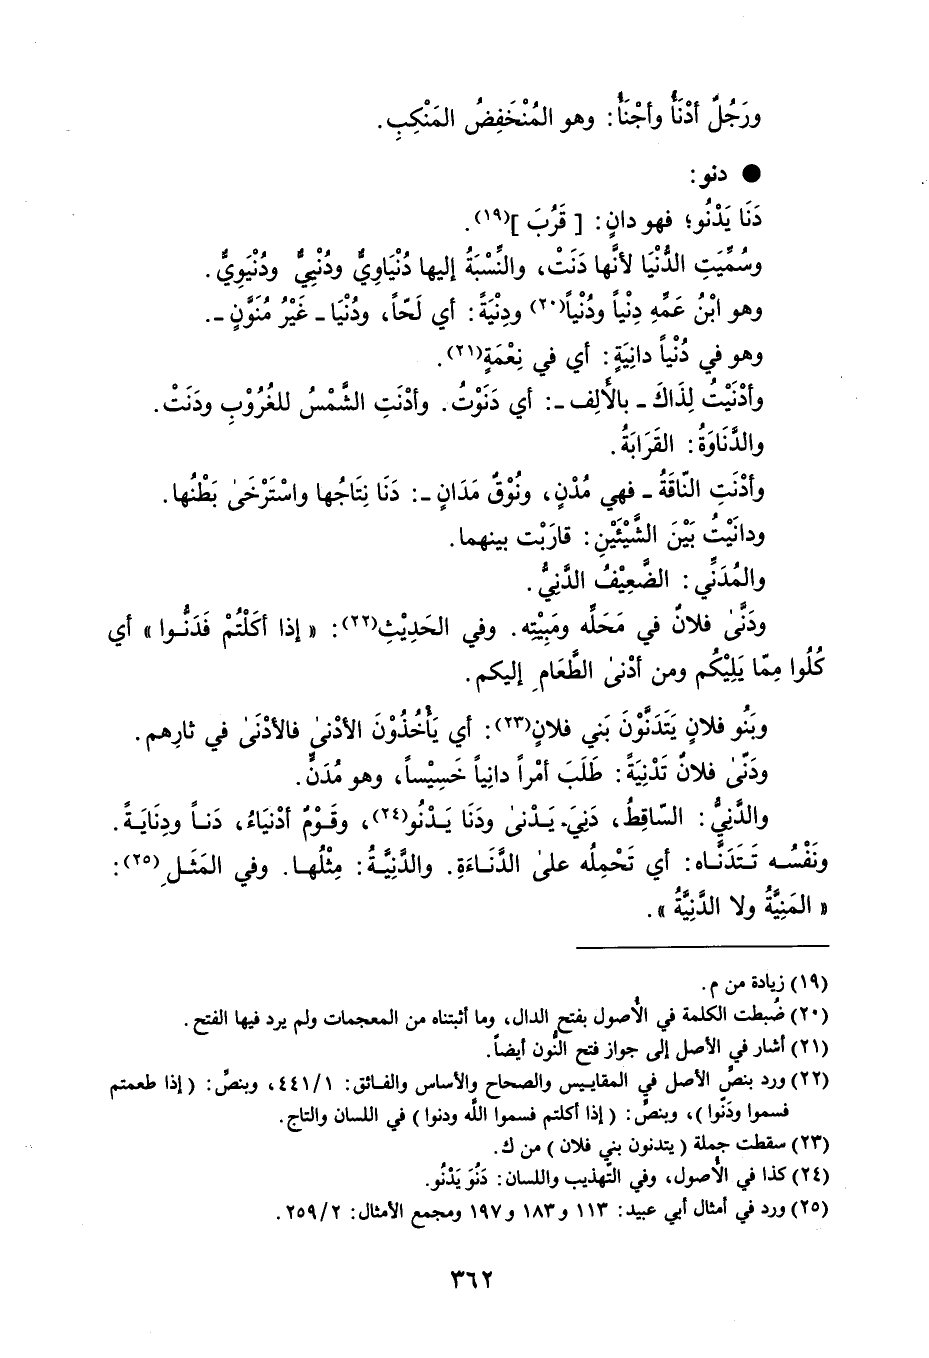 ورَجُلٌ أدْنَأُ وأجْنَأُ: وهو المُنْخَفِضُ المَنْكِبِ.
● دنو:
دَنَا يَدْنُو؛ فهو دانٍ: [ قَرُبَ ](١٩).
وسُمِّيَتِ الدُّنْيَا لأنَّها دَنَتْ، والنِّسْبَةُ إليها دُنْيَاوِيٌّ ودُنْيِيٌّ ودُنْيَوِيٌّ.
وهو ابْنُ عَمِّهِ دِنْياً ودُنْياً(٢٠) ودِنْيَةً: أي لَحّاً، ودُنْيَا ـ غَيْرُ مُنَوَّنٍ ـ.
وهو في دُنْياً دانِيَةٍ: أي في نِعْمَةٍ(٢١).
وأدْنَيْتُ لِذَاكَ ـ بالألِف ـ: أي دَنَوْتُ. وأدْنَتِ الشَّمْسُ للغُرُوْبِ ودَنَتْ.
والدَّنَاوَةُ: القَرَابَةُ.
وأدْنَتِ النّاقَةُ ـ فهي مُدْنٍ، ونُوْقٌ مَدَانٍ ـ: دَنَا نِتَاجُها واسْتَرْخَىٰ بَطْنُها.
ودانَيْتُ بَيْنَ الشَّيْئَيْنِ: قارَبْت بينهما.
والمُدَنِّي: الضَّعِيْفُ الدَّنِيُّ.
ودَنَّىٰ فلانٌ في مَحَلِّه ومَبِيْتِه. وفي الحَدِيْثِ(٢٢): « إذا أكَلْتُمْ فَدَنُّوا » أي
كُلُوا مِمّا يَلِيْكُم ومن أدْنىٰ الطَّعَامِ إليكم.
وبَنُو فلانٍ يَتَدَنَّوْنَ بَني فلانٍ(٢٣): أي يَأْخُذُوْنَ الأدْنىٰ فالأدْنَىٰ في ثارِهم.
ودَنّىٰ فلانٌ تَدْنِيَةً: طَلَبَ أمْراً دانِياً خَسِيْساً، وهو مُدَنٍّ.
والدَّنِيُّ: السّاقِطُ، دَنِيَ يَدْنىٰ ودَنَا يَدْنُو(٢٤)، وقَوْمٌ أدْنيَاءُ، دَنـاً ودِنَايَـةً.
ونَفْسُه تَتَدَنَّاه: أي تَحْمِلُه علىٰ الدَّنَاءَةِ. والدَّنِيَّةُ: مِثْلُها. وفي المَثَلِ(٢٥):
« المَنِيَّةُ ولا الدَّنِيَّةُ ».
(١٩) زيادة من م.
(٢٠) ضُبطت الكلمة في الأُصول بفتح الدال، وما أثبتناه من المعجمات ولم يرد فيها الفتح.
(٢١) أشار في الأصل إلى جواز فتح النُّون أيضاً.
(٢٢) ورد بنصِّ الأصل في المقاييس والصحاح والأساس والفائق: ٤٤١/١، وبنصِّ: ( إذا طعمتم
فسموا ودَنّوا )، وبنصِّ: ( إذا أكلتم فسموا اللّه ودنوا ) في اللسان والتاج.
(٢٣) سقطت جملة ( يتدنون بني فلان ) من ك.
(٢٤) كذا في الأُصول، وفي التّهذيب واللسان: دَنُوَ يَدْنُو.
(٢٥) ورد في أمثال أبي عبيد: ١١٣ و١٨٣ و١٩٧ ومجمع الأمثال: ٢٥٩/٢.
٣٦٢